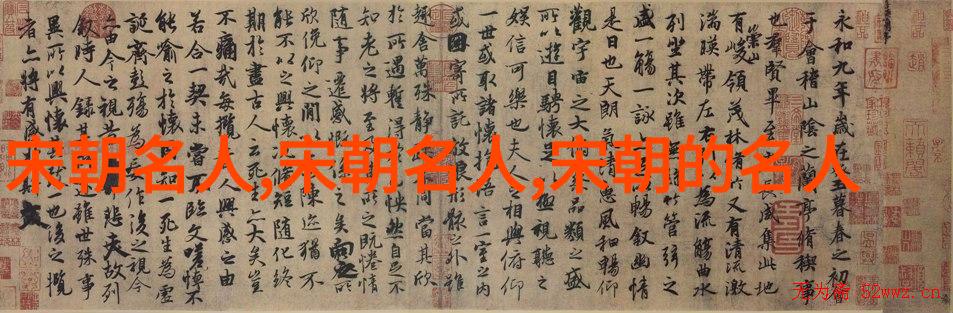 永和九年歲在丑暮春之初會
于會稽山陰之蘭亭脩稧事
也群賢畢至咸集此地
有崇山峻領茂林脩又有清流激
湍暎帶左右為流觴曲水
列坐其次雖無竹管弦之
盛一觴一詠暢敘幽情
是日也天朗氣清惠風和暢仰
觀宇宙之大俯品類之盛
所以遊目騁懷極視聽之
娛信可樂也夫人之相與俯仰
一世或取諸懷抱悟言一室之內
或因寄所託放浪形骸之外雖
趣舍萬殊靜同當其欣
於所遇暫得怏然自足不
知老之將至所之既惓情
隨事遷感慨之矣向之所
欣俛仰之間以陳迹猶不
能不以之興懷短隨化終
期於盡古人云死生大矣豈
不痛哉每攬人興感之由
若合一契未嘗不臨文嗟悼不
能喻之於懷知一死生為虛
誕齊彭殤為作後之視今
由今之視昔悲夫故列
敘時人錄其雖世殊事
異所以興懷一也後之攬
者亦將有感文
宋朝名人,宋朝名人,宋朝的名人
天为斋 52wwz.cn